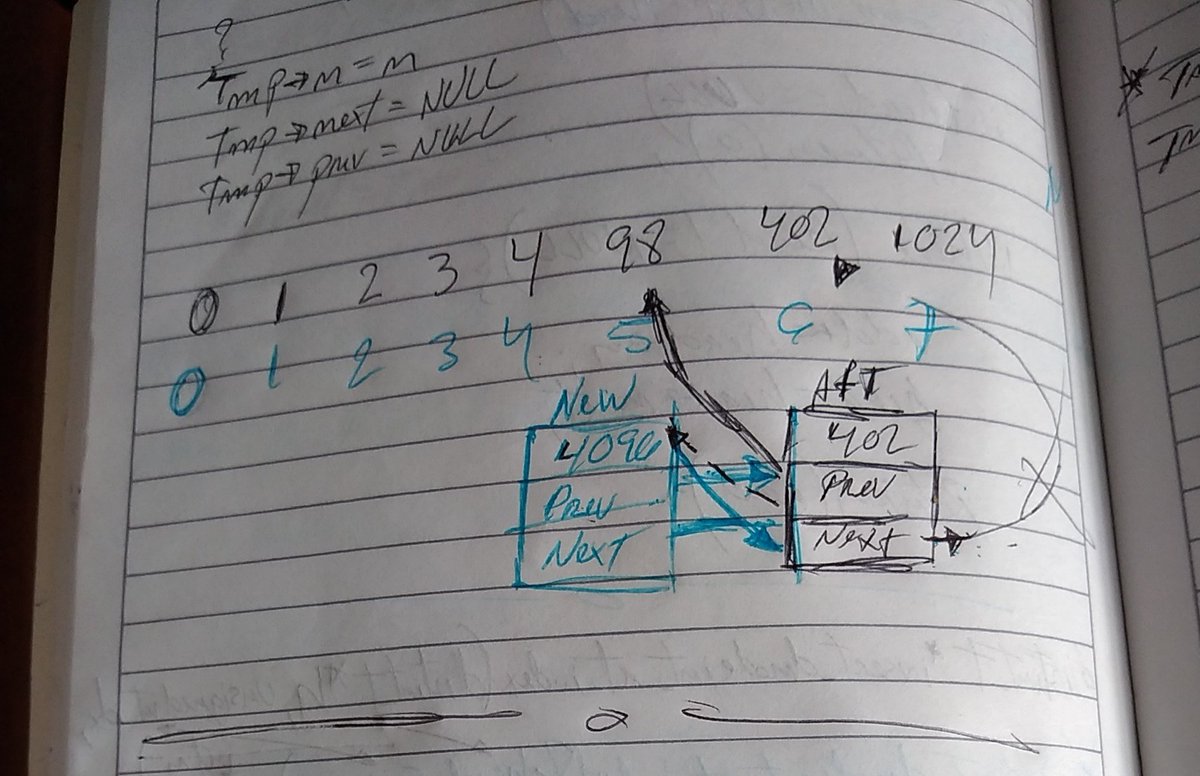 ?
Tmp→n = n
Tmp→next = NULL
Tmp→prev = NULL
0 1 2 3 4 98 402 1024
0 1 2 3 4 5 6 7
New
4096
Prev
Next
Aft
402
Prev
Next